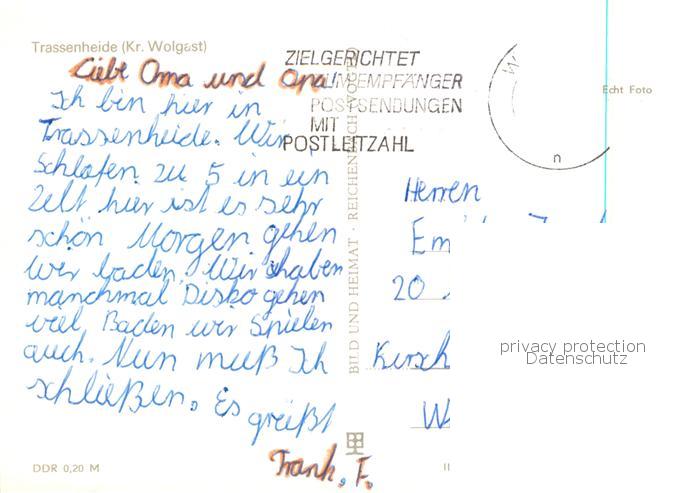 Trassenheide (Kr. Wolgast)
Liebe Oma und Opa!
Ich bin hier in
Trassenheide. Wir
Schlafen zu 5 in ein
Zelt hier ist es sehr
schön Morgen gehen
wir baden. Wir haben
manchmal Disko gehen
viel Baden wir Spielen
auch. Nun muß Ich
schließen. Es
grüßt
Frank. F.
DDR 0,20 M
ZIELGERICHTET
ZUM EMPFÄNGER
POSTSENDUNGEN
MIT
POSTLEITZAHL
BILD UND HEIMAT · REICHENBACH (VOGTL)
Echt Foto
Herren
Em
20
Kirsch
W
privacy protection
Datenschutz
II